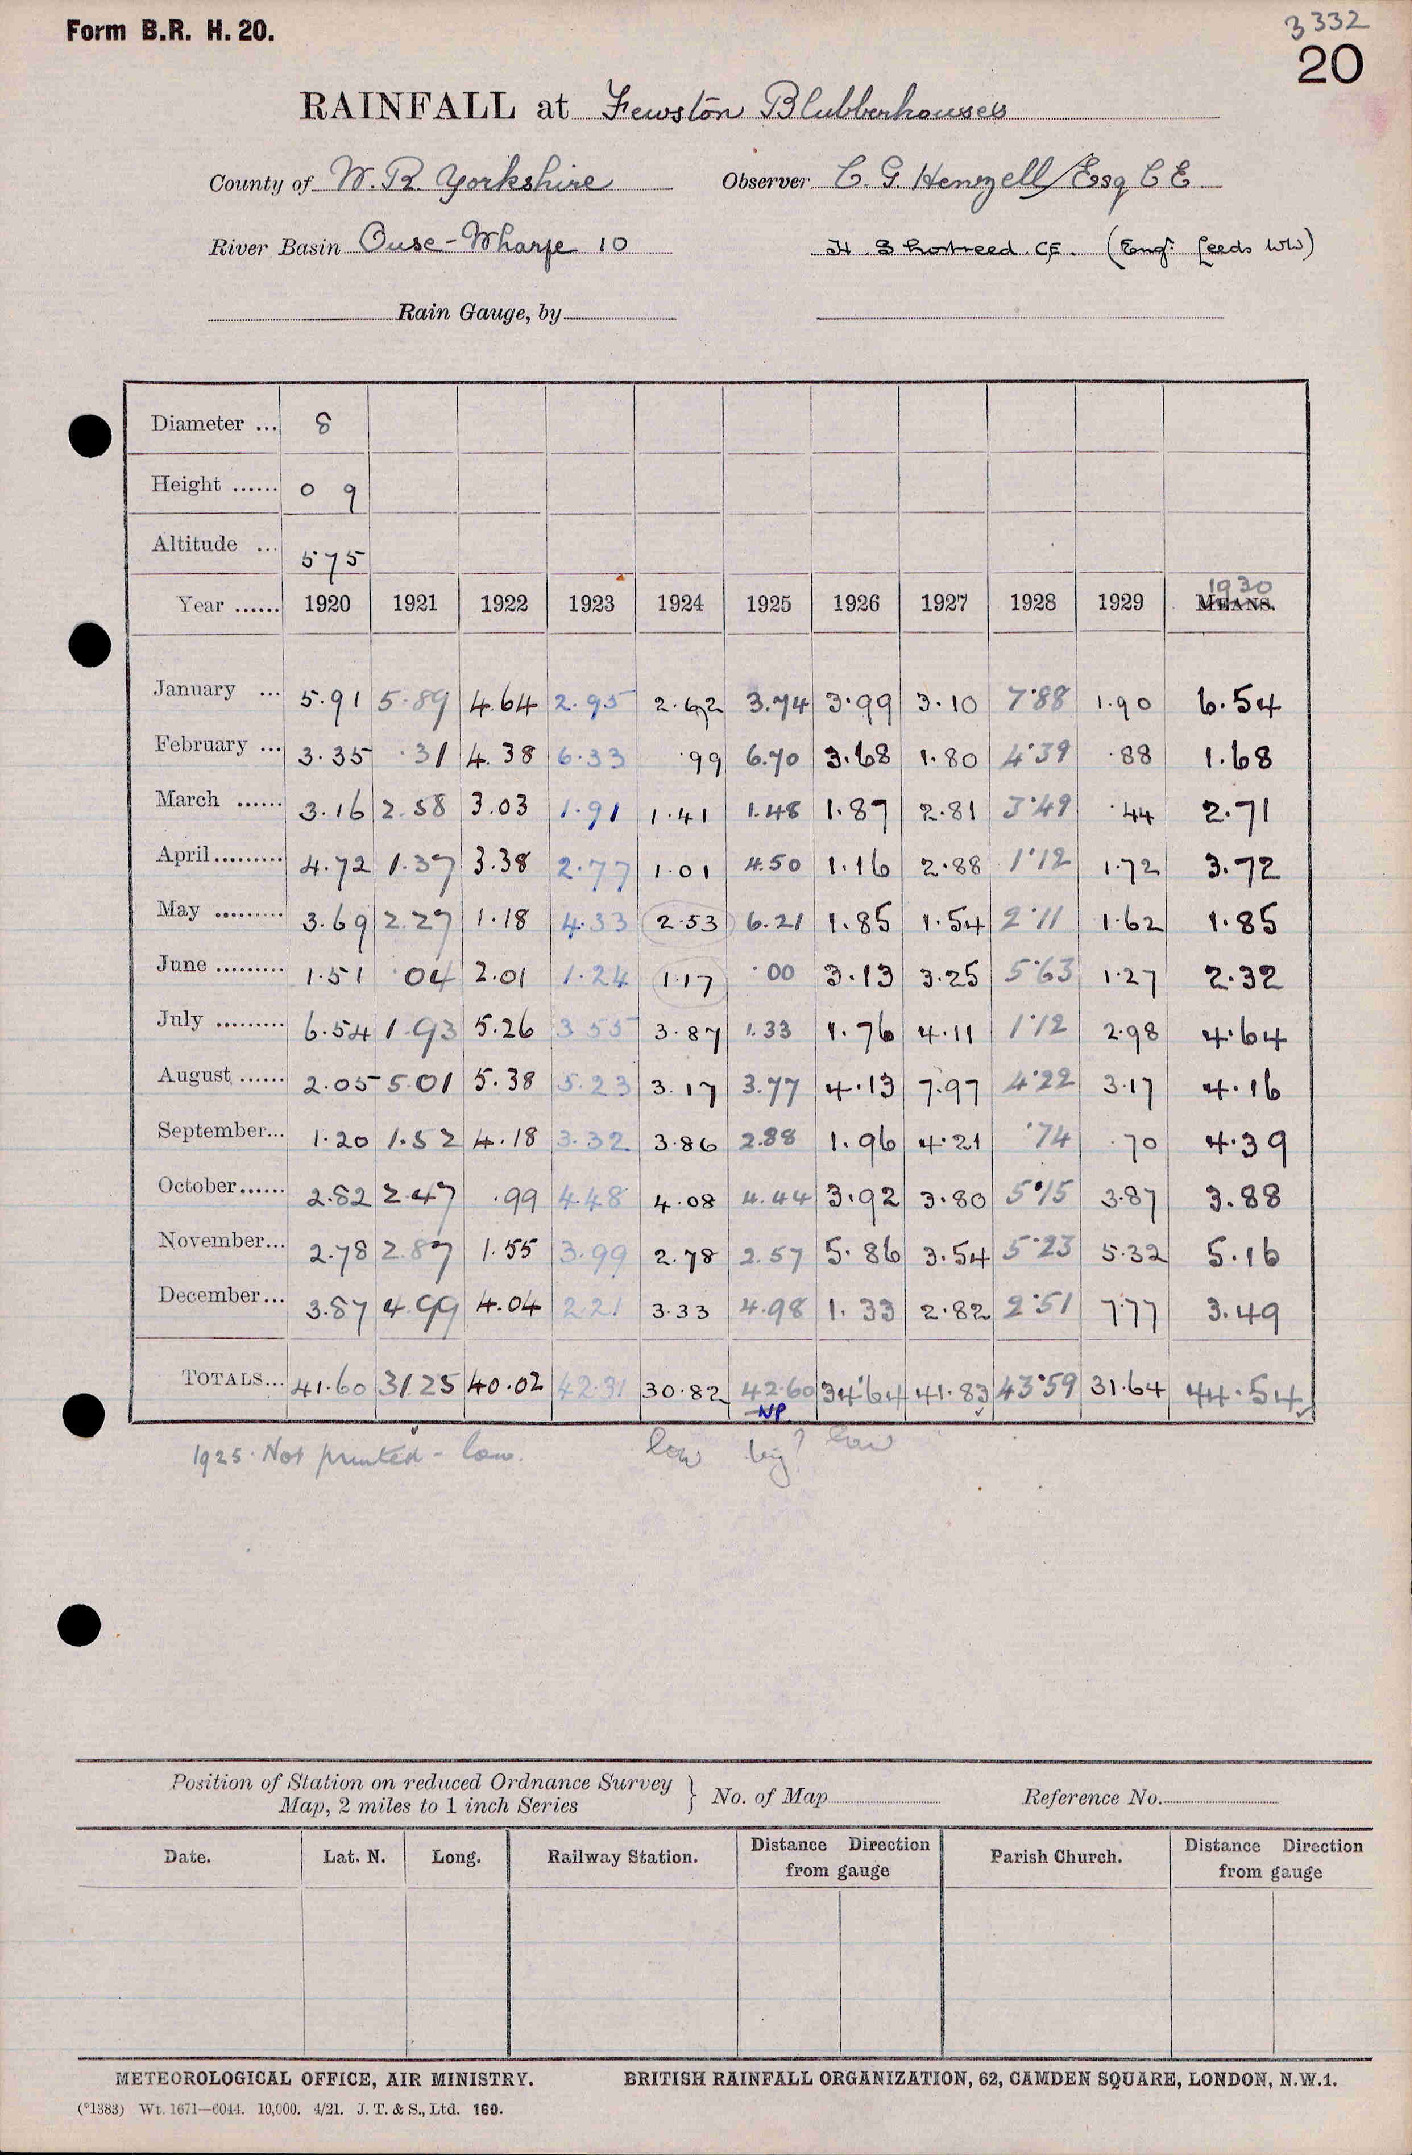 Form B.R. H. 20.
3332
20
RAINFALL at Fewston Blubberhouses
County of W. R. Yorkshire Observer C. G. Henzell Esq C E
River Basin Ouse - Wharfe 10 H Shortreed. CE. (Engr. Leeds WW)
Rain Gauge, by
Diameter ... 8
Height ...... 0 9
Altitude ... 575
Year ...... 1920 1921 1922 1923 1924 1925 1926 1927 1928 1929 MEANS. 1930
January ... 5.91 5.89 4.64 2.95 2.62 3.74 3.99 3.10 7.88 1.90 6.54
February ... 3.35 .31 4.38 6.33 .99 6.70 3.68 1.80 4.39 .88 1.68
March ...... 3.16 2.58 3.03 1.91 1.41 1.48 1.87 2.81 3.49 .44 2.71
April......... 4.72 1.37 3.38 2.77 1.01 4.50 1.16 2.88 1.12 1.72 3.72
May ......... 3.69 2.27 1.18 4.33 2.53 6.21 1.85 1.54 2.11 1.62 1.85
June ......... 1.51 .04 2.01 1.24 1.17 .00 3.13 3.25 5.63 1.27 2.32
July ......... 6.54 1.93 5.26 3.55 3.87 1.33 1.76 4.11 1.12 2.98 4.64
August ...... 2.05 5.01 5.38 5.23 3.17 3.77 4.13 7.97 4.22 3.17 4.16
September... 1.20 1.52 4.18 3.32 3.86 2.88 1.96 4.21 .74 .70 4.39
October...... 2.82 2.47 .99 4.48 4.08 4.44 3.92 3.80 5.15 3.87 3.88
November... 2.78 2.87 1.55 3.99 2.78 2.57 5.86 3.54 5.23 5.32 5.16
December... 3.87 4.99 4.04 2.21 3.33 4.98 1.33 2.82 2.51 7.77 3.49
TOTALS... 41.60 31.25 40.02 42.31 30.82 42.60 34.64 41.83 43.59 31.64 44.54
NP
1925. Not printed - low. low big? low
Position of Station on reduced Ordnance Survey
Map, 2 miles to 1 inch Series } No. of Map Reference No.
Date. Lat. N. Long. Railway Station. Distance Direction from gauge Parish Church. Distance Direction from gauge
METEOROLOGICAL OFFICE, AIR MINISTRY. BRITISH RAINFALL ORGANIZATION, 62, CAMDEN SQUARE, LONDON, N.W.1.
(*1383) Wt. 1671—6044. 10,000. 4/21. J. T. & S., Ltd. 160.